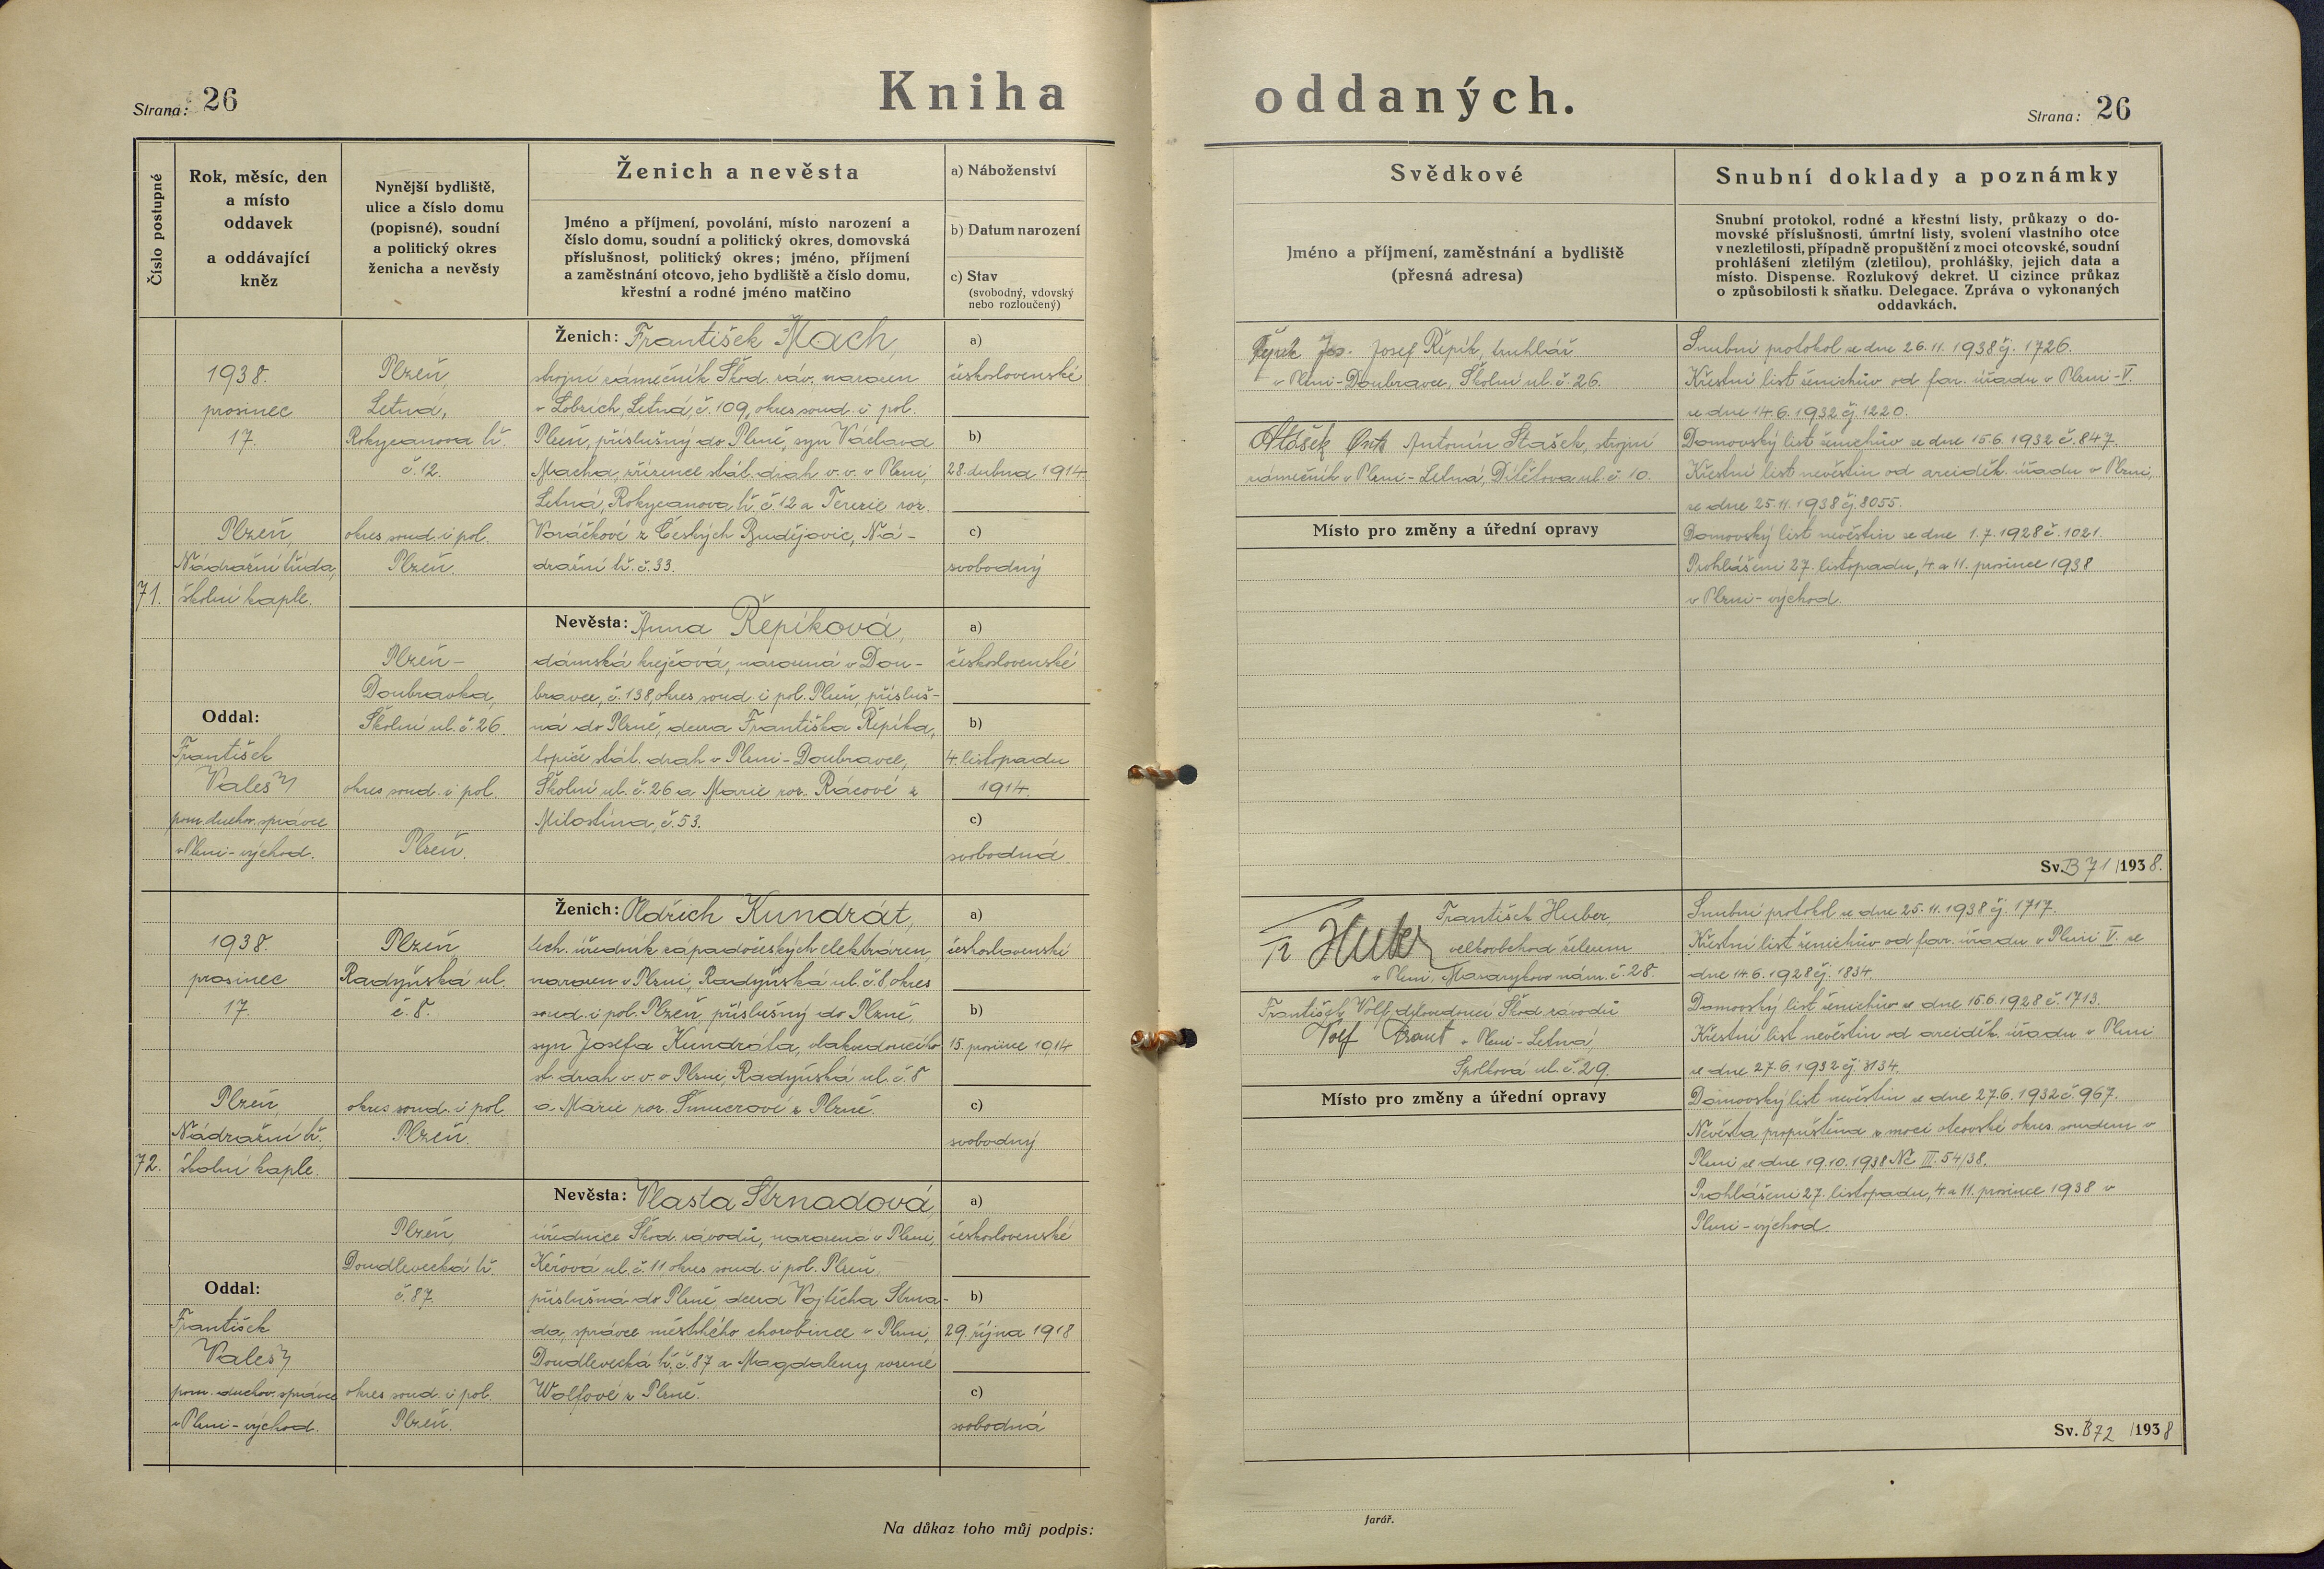 Strana: 26
Kniha
oddaných.
Strana: 26
Číslo postupné
Rok, měsíc, den
a místo
oddavek
a oddávající
kněz
Nynější bydliště,
ulice a číslo domu
(popisné), soudní
a politický okres
ženicha a nevěsty
Ženich a nevěsta
Jméno a příjmení, povolání, místo narození a
číslo domu, soudní a politický okres, domovská
příslušnost, politický okres; jméno, příjmení
a zaměstnání otcovo, jeho bydliště a číslo domu,
křestní a rodné jméno matčino
a) Náboženství
b) Datum narození
c) Stav
(svobodný, vdovský
nebo rozloučený)
Svědkové
Jméno a příjmení, zaměstnání a bydliště
(přesná adresa)
Snubní doklady a poznámky
Snubní protokol, rodné a křestní listy, průkazy o do-
movské příslušnosti, úmrtní listy, svolení vlastního otce
v nezletilosti, případně propuštění z moci otcovské, soudní
prohlášení zletilým (zletilou), prohlášky, jejich data a
místo. Dispense. Rozlukový dekret. U cizince průkaz
o způsobilosti k sňatku. Delegace. Zpráva o vykonaných
oddavkách.
71.
1938.
prosinec
17.
Plzeň,
Nádražní třída,
školní kaple.
Oddal:
František
Valeš
pom. duchov. správce
v Plzni-východ.
Plzeň,
Letná,
Rokycanova tř.
č. 12.
okres soud. i pol.
Plzeň.
Plzeň-
Doubravka,
Školní ul. č. 26.
okres soud. i pol.
Plzeň.
Ženich: František Mach,
strojní zámečník Škod. záv. narozen
v Lobzích, Letná, č. 109, okres soud. i pol.
Plzeň, příslušný do Plzně, syn Václava
Macha, zřízence stát. drah v. v. v Plzni,
Letná, Rokycanova tř. č. 12 a Terezie roz.
Voráčkové z Českých Budějovic, Ná-
dražní tř. č. 33.
Nevěsta: Anna Řepíková,
dámská krejčová, narozená v Dou-
bravce, č. 138, okres soud. i pol. Plzeň, přísluš-
ná do Plzně, dcera Františka Řepíka,
topiče stát. drah v Plzni-Doubravce,
Školní ul. č. 26 a Marie roz. Rácové z
Milostína, č. 53.
a)
československé
b)
28. dubna 1914.
c)
svobodný
a)
československé
b)
4. listopadu
1914.
c)
svobodná
Řepík Jos. Josef Řepík, truhlář
v Plzni-Doubravce, Školní ul. č. 26.
Stašek Ant. Antonín Stašek, strojní
zámečník v Plzni-Letná, Dítětova ul. č. 10.
Místo pro změny a úřední opravy
Snubní protokol ze dne 26. 11. 1938 čj. 1726.
Křestní list ženichův od far. úřadu v Plzni-V.
ze dne 14. 6. 1932 čj. 1220.
Domovský list ženichův ze dne 15. 6. 1932 č. 847.
Křestní list nevěstin od arciděk. úřadu v Plzni,
ze dne 25. 11. 1938 čj. 8055.
Domovský list nevěstin ze dne 1. 7. 1928 č. 1021.
Prohlášení 27. listopadu, 4. a 11. prosince 1938
v Plzni-východ.
Sv. B 71 /1938.
72.
1938.
prosinec
17.
Plzeň,
Nádražní tř.,
školní kaple.
Oddal:
František
Valeš
pom. duchov. správce
v Plzni-východ.
Plzeň,
Radyňská ul.
č. 8.
okres soud. i pol.
Plzeň.
Plzeň,
Doudlevecká tř.
č. 87.
okres soud. i pol.
Plzeň.
Ženich: Oldřich Kundrát,
tech. úředník západočeských elektráren,
narozen v Plzni, Radyňská ul. č. 8, okres
soud. i pol. Plzeň, příslušný do Plzně,
syn Josefa Kundráta, vlakvedoucího
st. drah v. v. v Plzni, Radyňská ul. č. 8
a Marie roz. Šmucrové z Plzně.
Nevěsta: Vlasta Strnadová,
úřednice Škod. závodů, narozená v Plzni,
ul. č. 11, okres soud. i pol. Plzeň,
příslušná do Plzně, dcera Vojtěcha Strna-
da, správce městského chorobince v Plzni,
Doudlevecká tř. č. 87 a Magdaleny rozené
Wolfové z Plzně.
a)
československé
b)
15. prosince 1914
c)
svobodný
a)
československé
b)
29. října 1918
c)
svobodná
František Huber,
Fr Huber velkoobchod železem
v Plzni, Masarykovo nám. č. 28.
František Wolf, dílovedoucí Škod. závodů
Wolf Frant v Plzni-Letná,
Spolková ul. č. 29.
Místo pro změny a úřední opravy
Snubní protokol ze dne 25. 11. 1938 čj. 1717.
Křestní list ženichův od far. úřadu v Plzni V. ze
dne 14. 6. 1928 čj. 1834.
Domovský list ženichův ze dne 15. 6. 1928 č. 1713.
Křestní list nevěstin od arciděk. úřadu v Plzni
ze dne 27. 6. 1932 čj. 3134.
Domovský list nevěstin ze dne 27. 6. 1932 č. 967.
Nevěsta propuštěna z moci otcovské okres. soudem v
Plzni ze dne 19. 10. 1938 Nc III. 54/38.
Prohlášeni 27. listopadu, 4. a 11. prosince 1938 v
Plzni-východ.
Sv. B 72 /1938
Na důkaz toho můj podpis:
farář.